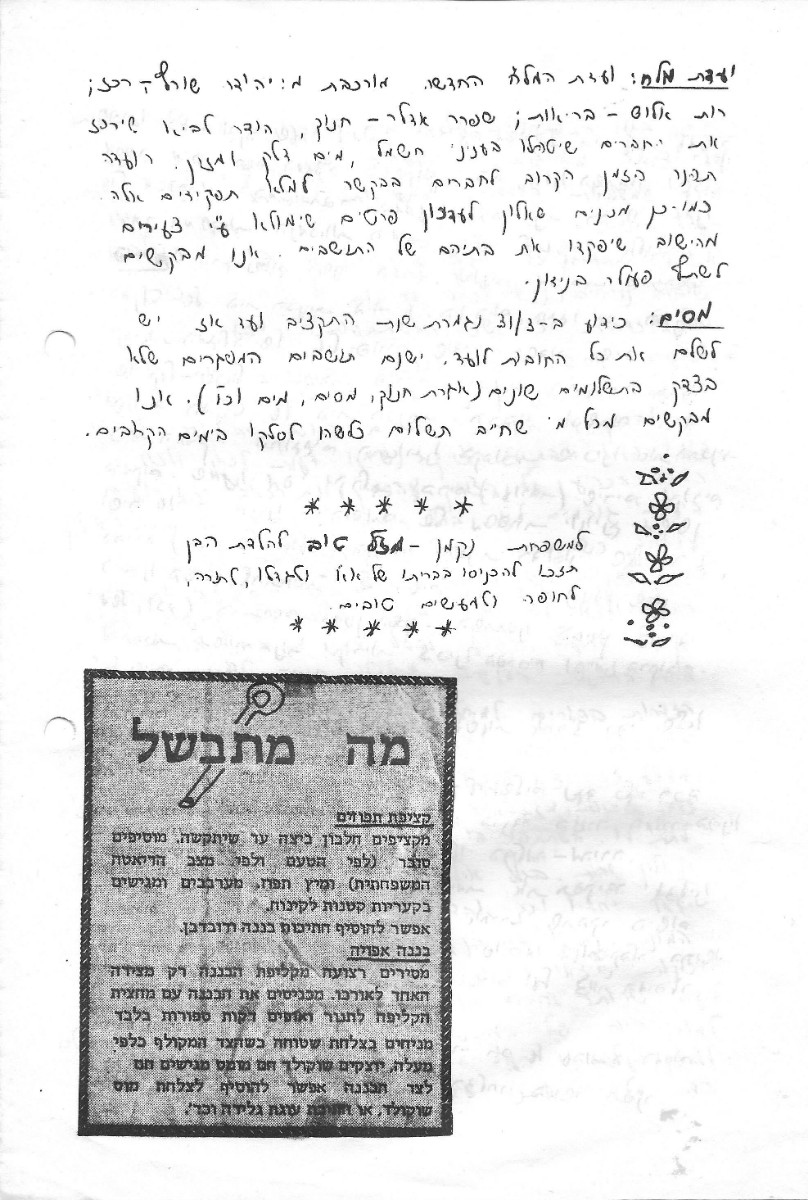 ועדת מלח: ועדת המלח החדשה מורכבת מ: יהודה שורץ - רכז;
רות אלוש - בריאות; שפרה אדלר - חנוך, הודר לביא שירכז
את החברים שיטפלו בעניני חשמל, מים דלק ומזון. הועדה
תפנה הזמן הקרוב לחברים בבקשה למלא תפקידים אלה.
כמו-כן מכינים שאלון לעדכון פרטים שימולאו ע"י צעירים
מהישוב שיפקדו את בתיהם של התושבים. אנו מבקשים
לשתף פעולה בנידון.
מסים: כידוע ב- נגמרת שנת התקציב ועד אז יש
לשלם את כל החובות לועד. ישנם תושבים המפגרים שלא
בצדק בתשלומים שונים (אגרת חנוך, מסים, מים וכו'). אנו
מבקשים מכל מי שחייב תשלום כלשהו לסלקו בימים הקרובים.
* * * * *
למשפחת נקמן - מזל טוב להולדת הבן
תזכו להכניסו בבריתו של א"א ולגדלו לתורה,
לחופה ולמעשים טובים.
* * * * *
מה מתבשל
קציפת תפוזים
מקציפים חלבון ביצה עד שיתקשה. מוסיפים
סוכר (לפי הטעם ולפי מצב הדיאטה
המשפחתית) ומיץ תפוז. מערבבים ומגישים
בקעריות קטנות לקינוח.
אפשר להוסיף חתיכות בננה ודובדבן.
בננה אפויה
מסירים רצועה מקליפת הבננה רק מצידה
האחד לאורכו. מכניסים את הבננה עם מחצית
הקליפה לתנור ואופים דקות ספורות בלבד
מניחים בצלחת שטוחה כשהצד המקולף כלפי
מעלה, יוצקים שוקולד חם מומס מגישים חם
לצד הבננה אפשר להוסיף לצלחת מוס
שוקולד, או חתיכת עוגת גלידה וכד'.